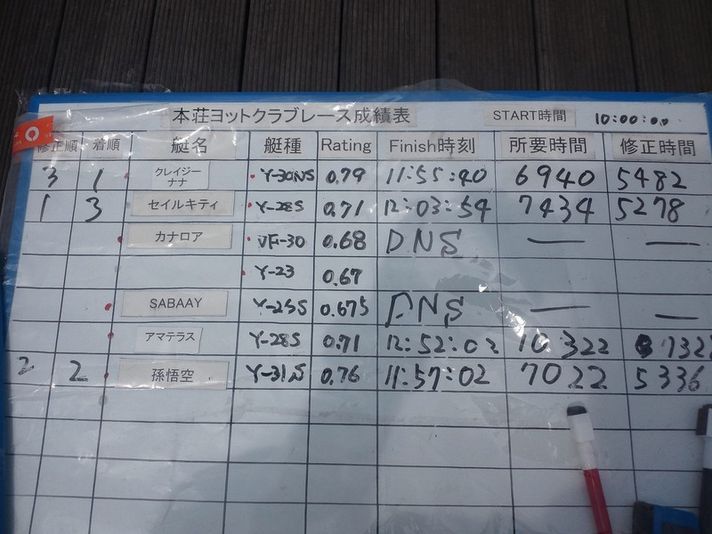 本荘ヨットクラブレース成績表 START時間 10:00:00
修正順 着順 艇名 艇種 Rating Finish時刻 所要時間 修正時間
3 1 クレイジーナナ Y-30NS 0.79 11:55:40 6940 5482
1 3 セイルキティ Y-28S 0.71 12:03:54 7434 5278
カナロア 0.68 DNS — —
Y-23 0.67
SABAAY Y-25S 0.675 DNS — —
アマテラス Y-28S 0.71 12:52:02 10322 7322
2 2 孫悟空 Y-31S 0.76 11:57:02 7022 5336